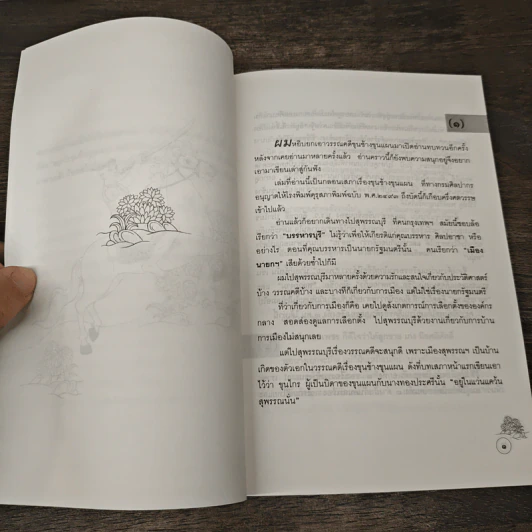 (๑)
ผมหยิบยกเอาวรรณคดีขุนช้างขุนแผนมาเปิดอ่านทบทวนอีกครั้ง
หลังจากเคยอ่านมาหลายครั้งแล้ว อ่านคราวนี้ก็ยังพบความสนุกอยู่จึงอยาก
เอามาเขียนเล่าสู่กันฟัง
เล่มที่อ่านนี้เป็นกลอนเสภาเรื่องขุนช้างขุนแผน ที่ทางกรมศิลปากร
อนุญาตให้โรงพิมพ์คุรุสภาพิมพ์ฉบับ ถึงบัดนี้ก็เกือบครึ่งศตวรรษ
เข้าไปแล้ว
อ่านแล้วก็อยากเดินทางไปสุพรรณบุรี ที่คนกรุงเทพฯ สมัยนี้ชอบล้อ
เรียกว่า "บรรหารบุรี" ไม่รู้ว่าเพื่อให้เกียรติแก่คุณบรรหาร ศิลปอาชา หรือ
อย่างไร ตอนที่คุณบรรหารเป็นนายกรัฐมนตรีนั้น คนเรียกว่า "เมือง
นายกฯ" เสียด้วยซ้ำไปก็มี
ผมไปสุพรรณบุรีมาหลายครั้งด้วยความรักและสนใจเกี่ยวกับประวัติศาสตร์
บ้าง วรรณคดีบ้าง และบางทีก็เกี่ยวกับการเมือง แต่ไม่ใช่เรื่องนายกรัฐมนตรี
ที่ว่าเกี่ยวกับการเมืองก็คือ เคยไปดูสังเกตการณ์การเลือกตั้งขององค์กร
กลาง สอดส่องดูแลการเลือกตั้ง ไปสุพรรณบุรีด้วยงานเกี่ยวกับการบ้าน
การเมืองไม่สนุกเลย
แต่ไปสุพรรณบุรีเรื่องวรรณคดีจะสนุกดี เพราะเมืองสุพรรณฯ เป็นบ้าน
เกิดของตัวเอกในวรรณคดีเรื่องขุนช้างขุนแผน ดังที่บทเสภาหน้าแรกเขียนเอา
ไว้ว่า ขุนไกร ผู้เป็นบิดาของขุนแผนกับนางทองประศรีนั้น "อยู่ในแว่นแคว้น
สุพรรณนั่น"
๑